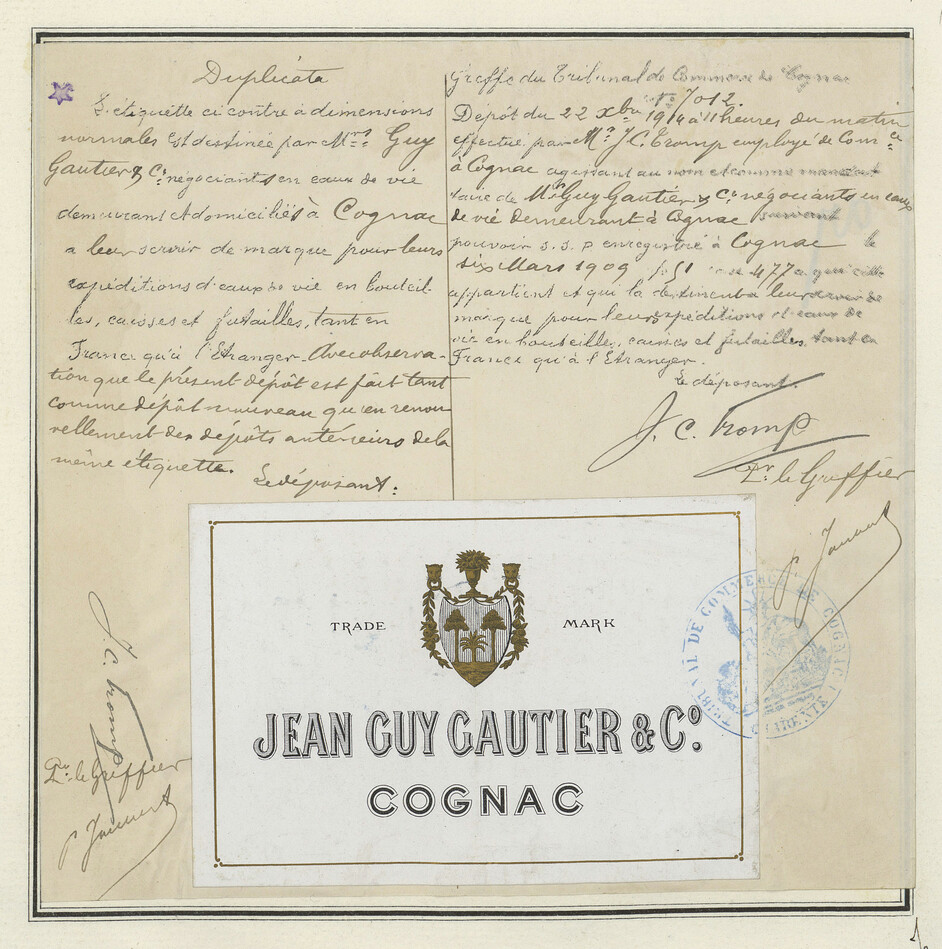 Duplicata
L'étiquette ci contre à dimensions
normales est destinée par Mrs Guy
Gautier & Co négociants en eaux de vie
demeurant et domiciliés à Cognac
a leur servir de marque pour leurs
expéditions d'eaux de vie en bouteil-
les, caisses et futailles, tant en
France qu'à l'Etranger. Avec observa-
tion que le présent dépôt est fait tant
comme dépôt nouveau qu'en renou
vellement des dépôts antérieurs de la
même étiquette.
Le déposant:
J. C. Tromp
Pr. le Greffier
Greffe du Tribunal de Commerce de Cognac
No 7012.
Dépôt du 22 Xbre 1914 à 11 heures du matin
effectué par Mr J. C. Tromp employé de Comce
à Cognac agissant au nom et comme manda
taire de Mrs Guy Gautier & Co négociants en eaux
de vie demeurant à Cognac suivant
pouvoir s. s. p enregistré à Cognac le
six Mars 1909 477 a qui elle
appartient et qui la destinent a leur servir de
marque pour leurs expéditions d'eaux de
vie en bouteilles, caisses et futailles tant en
France qu'à l'Etranger.
Le déposant.
J. C. Tromp
Pr. le Greffier
TRADE MARK
JEAN GUY GAUTIER & Co.
COGNAC
TRIBUNAL DE COMMERCE DE COGNAC
CHARENTE